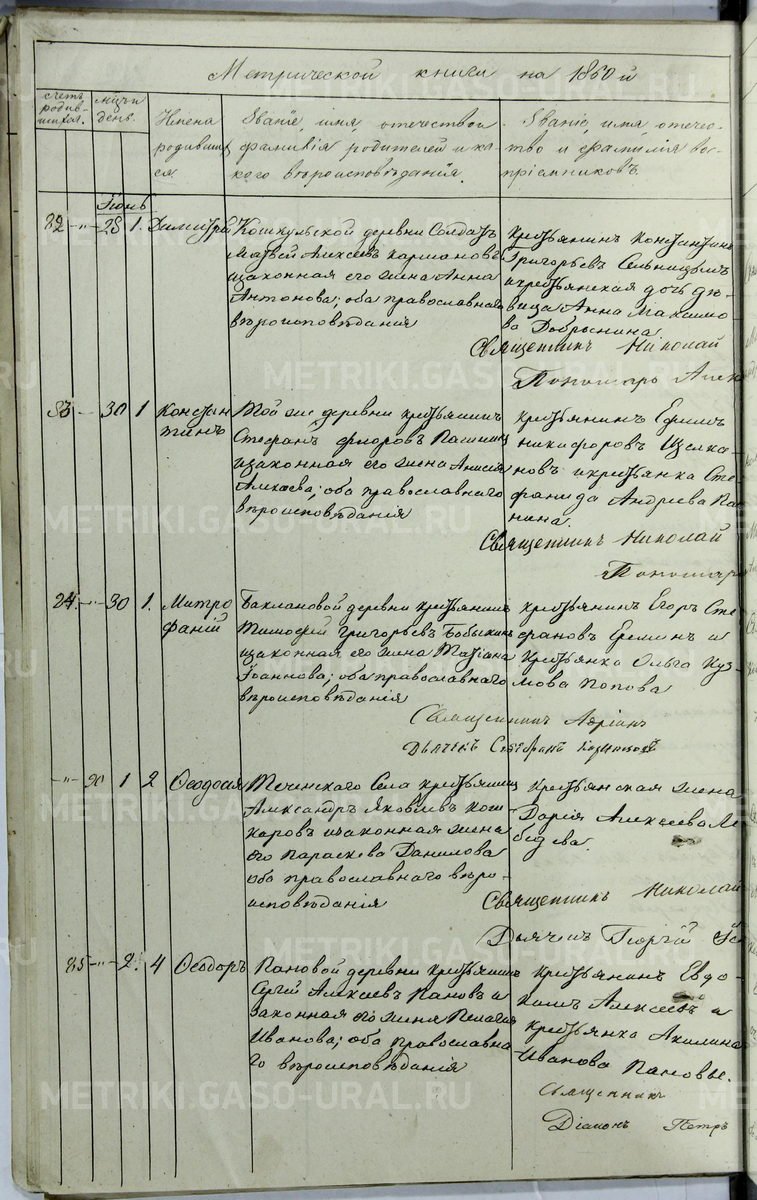 Метрической книги на 1860й
счетъ родив-шихся.
мцъ и день.
Имена родивших ся
Званіе, имя, отечество и
фамилія родителей и ка-
кого вѣроисповѣданія.
Званіе, имя, отечес-
тво и фамилія вос-
пріемниковъ.
Іюнь
82 -"- 28 1. Димитрій
Кошкульской деревни Солдатъ
Матвей Алексеевъ Кармановъ
изаконная его жена Анна
Антонова; оба православнаго
вѣроисповѣданія
крестьянинъ Константинъ
Григорьевъ
икрестьянская дочь дѣ-
вица Анна Максимо-
ва
Священникъ Николай
Пономарь
83 -"- 30 1 Констан
тинъ
Той же деревни крестьянинъ
Стефанъ
изаконная его жена Анисія
Алексеева; оба православнаго
вѣроисповѣданія
крестьянинъ Ефимъ
Никифоровъ Щелка-
новъ икрестьянка Сте-
фанида Андреева Па-
нина.
Священникъ Николай
Пономарь
24. -"- 30 1. Митро
фаній
Баклановой деревни крестьянинъ
Тимофей Григорьевъ Бобыкинъ
изаконная его жена Татіана
Іоаннова; оба православнаго
вѣроисповѣданія
крестьянинъ Егоръ Сте
фановъ Ереминъ и
крестьянка Ольга Куз-
мова Попова
Священникъ Адріанъ
Дьячекъ Стефанъ
-"- 20 1 2 Ѳеодосія
Теченскаго Села крестьянинъ
Александръ Яковлевъ Кош
каровъ изаконная жена
его Параскева Данилова
оба православнаго вѣро-
исповѣданія
крестьянская жена
Дарія Алексеева Ле-
бедева.
Священникъ Николай
Дьячекъ Георгій
85 -"- 2. 4 Ѳеодоръ
Пановой деревни крестьянинъ
Сергій Алексеевъ Пановъ и
законная его жена Пелагія
Иванова; оба православна
го вѣроисповѣданія
крестьянинъ Евдо-
кимъ Алексеевъ и
крестьянка Акилина
Иванова Пановы.
Священникъ
Діаконъ Петръ
METRIKI.GASO-URAL.RU
METRIKI.GASO-URAL.RU
METRIKI.GASO-URAL.RU
METRIKI.GASO-URAL.RU
METRIKI.GASO-URAL.RU
METRIKI.GASO-URAL.RU
METRIKI.GASO-URAL.RU
METRIKI.GASO-URAL.RU